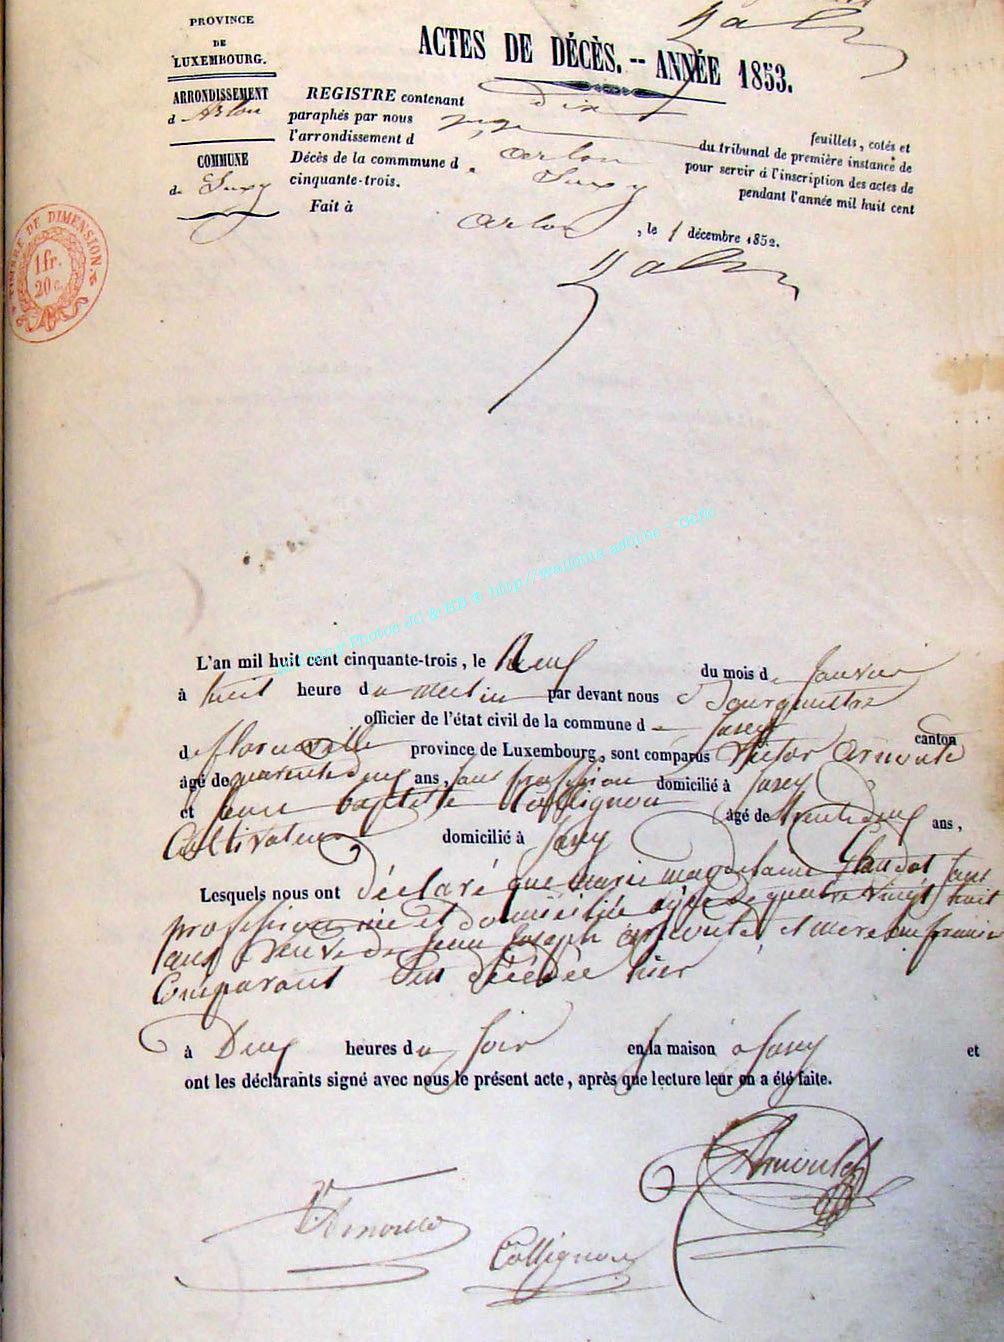 PROVINCE
DE
LUXEMBOURG.
ARRONDISSEMENT
d'Arlon
COMMUNE
de Suxy
ACTES DE DÉCÈS. -- ANNÉE 1853.
REGISTRE contenant dix feuillets, cotés et
paraphés par nous juge du tribunal de première instance de
l'arrondissement d arlon pour servir à l'inscription des actes de
Décès de la commmune de Suxy pendant l'année mil huit cent
cinquante-trois.
Fait à arlon, le 1 décembre 1852.
TIMBRE DE DIMENSION.
1 fr.
20 c.
Photos JC & HB © http://
L'an mil huit cent cinquante-trois, le neuf du mois de Janvier
à huit heure du matin par devant nous Bourgmestre
officier de l'état civil de la commune de Suxy canton
de florenville province de Luxembourg, sont comparus Victor arnould
âgé de quarante deux ans, sans profession domicilié à Suxy
et Jean baptiste Collignon âgé de trente deux ans,
Cultivateur domicilié à Suxy
Lesquels nous ont déclaré que marie magdelaine Claudot sans
profession née et domiciliée agée de quatre vingt huit
ans veuve de Jean Joseph arnould et mere au premier
Comparant est décédée hier
à Deux heures du soir en sa maison à Suxy et
ont les déclarants signé avec nous le présent acte, après que lecture leur en a été faite.
Arnould
V Arnould
Collignon